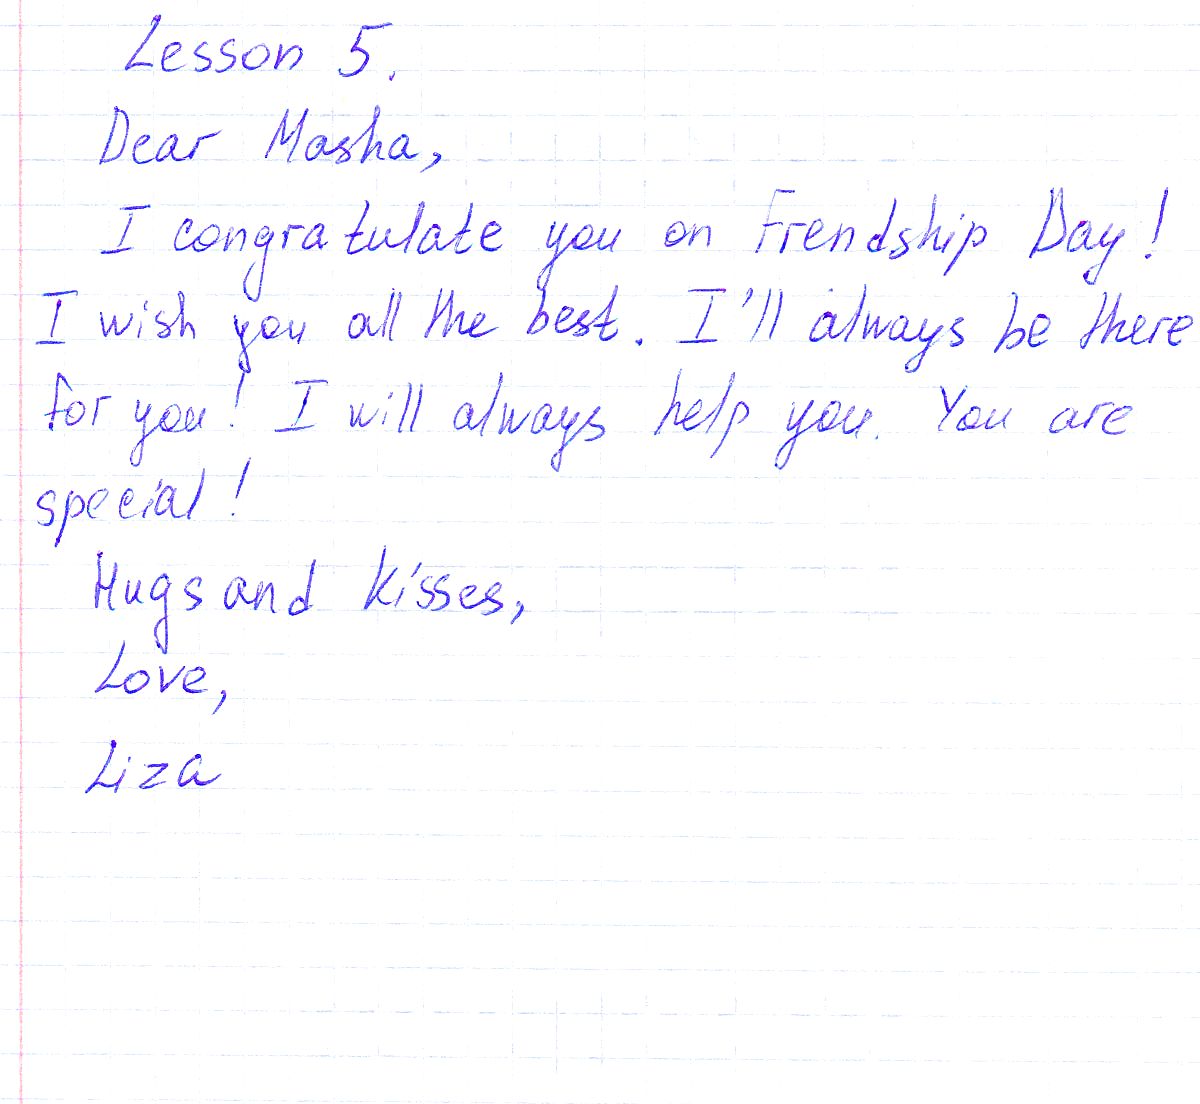 Lesson 5.
Dear Masha,
I congratulate you on Frendship Day!
I wish you all the best. I'll always be there
for you! I will always help you. You are
special!
Hugs and Kisses,
Love,
Liza